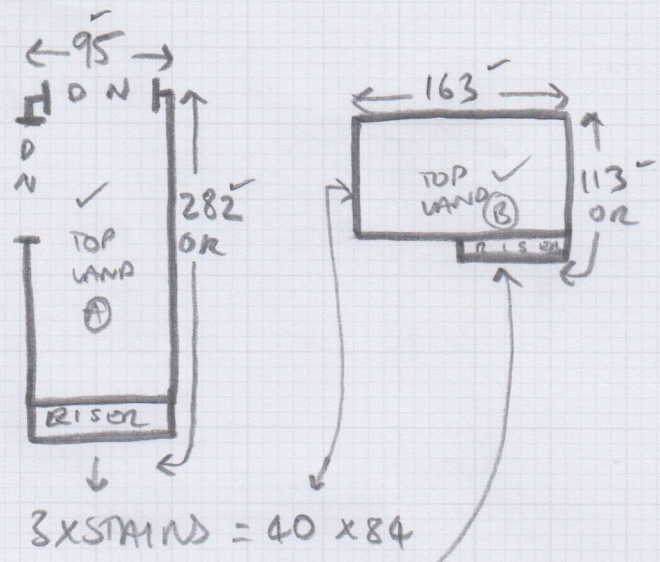 95
D N
D
N
282
OR
TOP
LAND
A
RISER
163
TOP
LAND B
113
OR
RISER
3 X STAIRS = 40 X 84